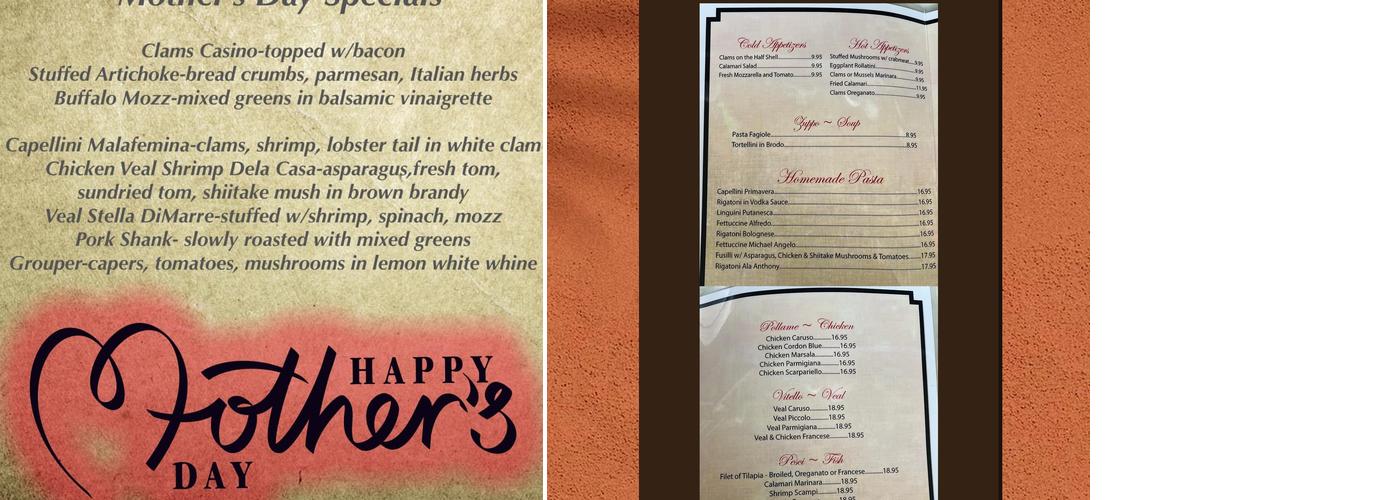 Mother's Day Specials
Clams Casino-topped w/bacon
Stuffed Artichoke-bread crumbs, parmesan, Italian herbs
Buffalo Mozz-mixed greens in balsamic vinaigrette
Capellini Malafemina-clams, shrimp, lobster tail in white clam
Chicken Veal Shrimp Dela Casa-asparagus,fresh tom,
sundried tom, shiitake mush in brown brandy
Veal Stella DiMarre-stuffed w/shrimp, spinach, mozz
Pork Shank- slowly roasted with mixed greens
Grouper-capers, tomatoes, mushrooms in lemon white whine
HAPPY
Mother's
DAY
Cold Appetizers
Clams on the Half Shell 9.95
Calamari Salad 9.95
Fresh Mozzarella and Tomato 9.95
Hot Appetizers
Stuffed Mushrooms w/ crabmeat 9.95
Eggplant Rollatini 9.95
Clams or Mussels Marinara 9.95
Fried Calamari 11.95
Clams Oreganato 9.95
Zuppo ~ Soup
Pasta Fagiole 8.95
Tortellini in Brodo 8.95
Homemade Pasta
Capellini Primavera 16.95
Rigatoni in Vodka Sauce 16.95
Linguini Putanesca 16.95
Fettuccine Alfredo 16.95
Rigatoni Bolognese 16.95
Fettuccine Michael Angelo 16.95
Fusilli w/ Asparagus, Chicken & Shiitake Mushrooms & Tomatoes 17.95
Rigatoni Ala Anthony 17.95
Pollame ~ Chicken
Chicken Caruso 16.95
Chicken Cordon Blue 16.95
Chicken Marsala 16.95
Chicken Parmigiana 16.95
Chicken Scarpariello 16.95
Vitello ~ Veal
Veal Caruso 18.95
Veal Piccolo 18.95
Veal Parmigiana 18.95
Veal & Chicken Francese 18.95
Pesci ~ Fish
Filet of Tilapia - Broiled, Oreganato or Francese 18.95
Calamari Marinara 18.95
Shrimp Scampi 18.95